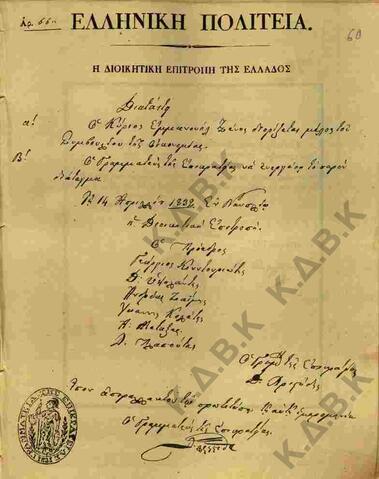 Αρ.
60
ΕΛΛΗΝΙΚΗ ΠΟΛΙΤΕΙΑ.
Η ΔΙΟΙΚΗΤΙΚΗ ΕΠΙΤΡΟΠΗ ΤΗΣ ΕΛΛΑΔΟΣ
Διατάττει
α!
Ο Κύριος Εμμανουήλ Ξένος διορίζεται μέλος του
Συμβουλίου της Οικονομίας.
Β!
Ο Γραμματεύς της Επικρατείας να ενεργήση το παρόν
διάταγμα.
Τη 14 Απριλίου 1832 Εν Ναυπλίω
η Διοικητική Επιτροπή
Ο Πρόεδρος
Γεώργιος Κουντουριώτης
Δ. Υψηλάντης
Ανδρέας Ζαΐμης
Ιωάννης Κωλέτης
Α. Μεταξάς
Δ. Πλαπούτας
Ο Γραμ. της Επικρατείας
Ο Γραμματεύς της Επικρατείας
Κ.Δ.Β.Κ
Κ.Δ.Β.Κ
Κ.Δ.Β.Κ